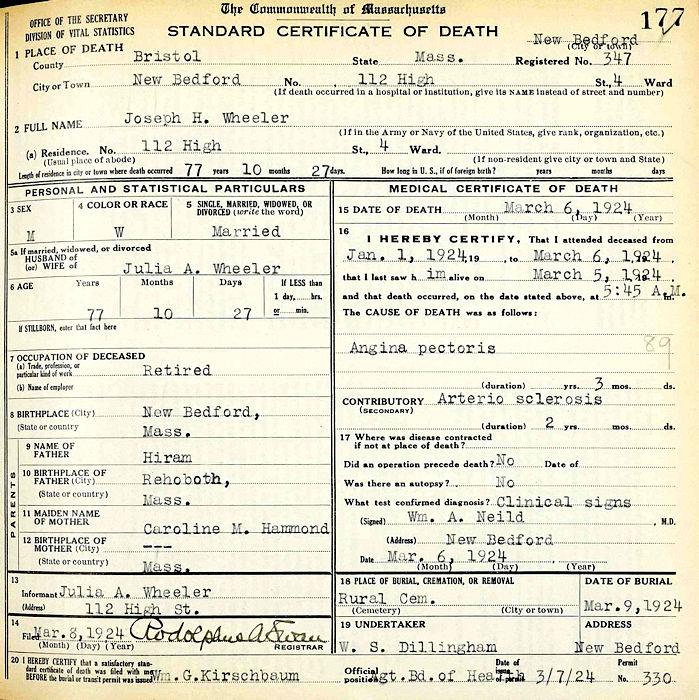 The Commonwealth of Massachusetts
177
OFFICE OF THE SECRETARY
DIVISION OF VITAL STATISTICS
STANDARD CERTIFICATE OF DEATH
New Bedford
(City or town)
1 PLACE OF DEATH
County Bristol State Mass. Registered No. 347
City or Town New Bedford No. 112 High St., 4 Ward
(If death occurred in a hospital or institution, give its NAME instead of street and number)
2 FULL NAME Joseph H. Wheeler
(If in the Army or Navy of the United States, give rank, organization, etc.)
(a) Residence. No. 112 High St., 4 Ward.
(Usual place of abode) (If non-resident give city or town and State)
Length of residence in city or town where death occurred 77 years 10 months 27 days. How long in U. S., if of foreign birth? years months days
PERSONAL AND STATISTICAL PARTICULARS
3 SEX M
4 COLOR OR RACE W
5 SINGLE, MARRIED, WIDOWED, OR DIVORCED (write the word)
Married
5a If married, widowed, or divorced
HUSBAND of
(or) WIFE of Julia A. Wheeler
6 AGE Years Months Days If LESS than
1 day,....hrs.
77 10 27 or.... min.
If STILLBORN, enter that fact here
7 OCCUPATION OF DECEASED
(a) Trade, profession, or
particular kind of work Retired
(b) Name of employer
8 BIRTHPLACE (City) New Bedford,
(State or country) Mass.
PARENTS
9 NAME OF
FATHER Hiram
10 BIRTHPLACE OF
FATHER (City) Rehoboth,
(State or country) Mass.
11 MAIDEN NAME
OF MOTHER Caroline M. Hammond
12 BIRTHPLACE OF
MOTHER (City) ---
(State or country) Mass.
13
Informant Julia A. Wheeler
(Address) 112 High St.
14
Filed Mar. 8, 1924 Rodolphus A Swan
(Month) (Day) (Year) REGISTRAR
MEDICAL CERTIFICATE OF DEATH
15 DATE OF DEATH March 6, 1924
(Month) (Day) (Year)
16
I HEREBY CERTIFY, That I attended deceased from
Jan. 1, 1924, 19 , to March 6, 1924.
that I last saw h im alive on March 5, 1924
and that death occurred, on the date stated above, at 5:45 A.M. m.
The CAUSE OF DEATH was as follows:
Angina pectoris 89
(duration) yrs. 3 mos. ds.
CONTRIBUTORY Arterio sclerosis
(SECONDARY)
(duration) 2 yrs. mos. ds.
17 Where was disease contracted
if not at place of death?
Did an operation precede death? No Date of
Was there an autopsy? No
What test confirmed diagnosis? Clinical signs
(Signed) Wm. A. Neild , M.D.
(Address) New Bedford
Date Mar. 6, 1924
(Month) (Day) (Year)
18 PLACE OF BURIAL, CREMATION, OR REMOVAL
Rural Cem.
(Cemetery) (City or town)
DATE OF BURIAL
Mar. 9, 1924
19 UNDERTAKER
W. S. Dillingham
ADDRESS
New Bedford
20 I HEREBY CERTIFY that a satisfactory stan-
dard certificate of death was filed with me
BEFORE the burial or transit permit was issued Wm. G. Kirschbaum
Official
position Agt. Bd. of Health
Date of
issue 3/7/24
Permit
No. 330